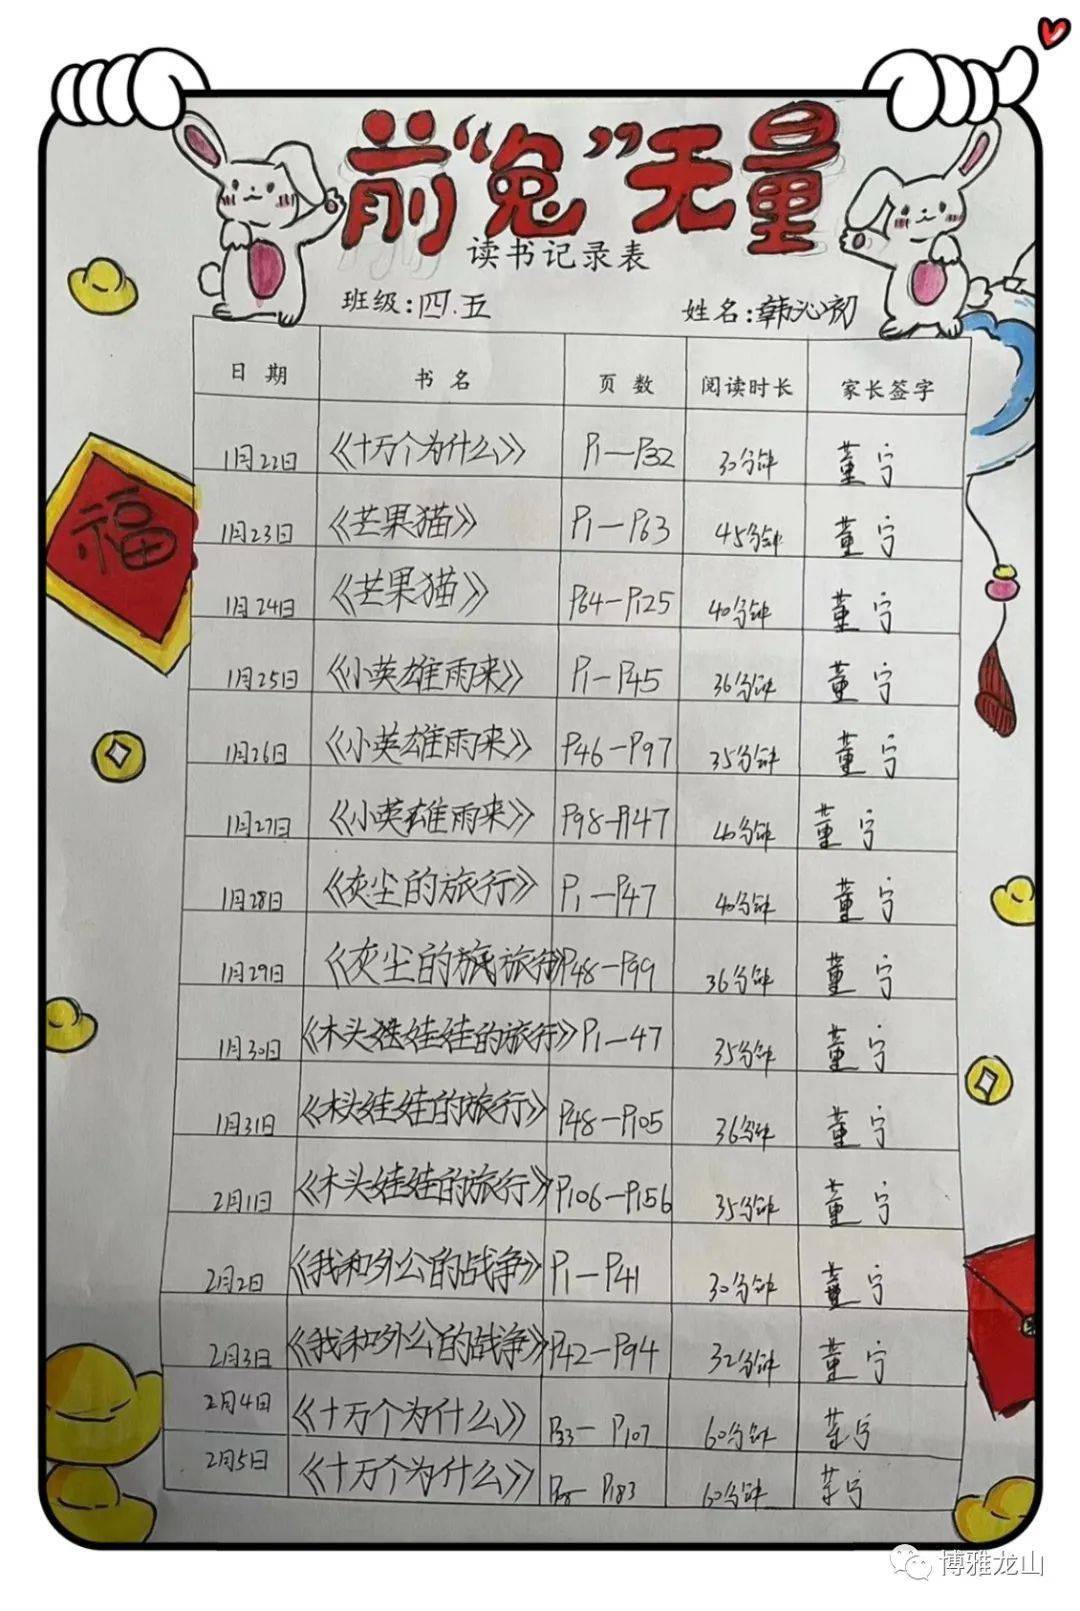 前“兔”无量
读书记录表
班级:四.五 姓名:韩沁初
日期 书名 页数 阅读时长 家长签字
1月22日 《十万个为什么》 P1—P32 30分钟 董宁
1月23日 《芒果猫》 P1—P63 45分钟 董宁
1月24日 《芒果猫》 P64—P125 40分钟 董宁
1月25日 《小英雄雨来》 P1—P45 36分钟 董宁
1月26日 《小英雄雨来》 P46—P97 35分钟 董宁
1月27日 《小英雄雨来》 P98-P147 40分钟 董宁
1月28日 《灰尘的旅行》 P1—P47 40分钟 董宁
1月29日 《灰尘的旅行》 P48—P99 36分钟 董宁
1月30日 《木头娃娃的旅行》 P1—47 35分钟 董宁
1月31日 《木头娃娃的旅行》 P48—P105 36分钟 董宁
2月1日 《木头娃娃的旅行》 P106—P156 35分钟 董宁
2月2日 《我和外公的战争》 P1—P41 30分钟 董宁
2月3日 《我和外公的战争》 P42—P94 32分钟 董宁
2月4日 《十万个为什么》 P33— P107 60分钟 董宁
2月5日 《十万个为什么》 P183 60分钟 董宁
福
博雅龙山